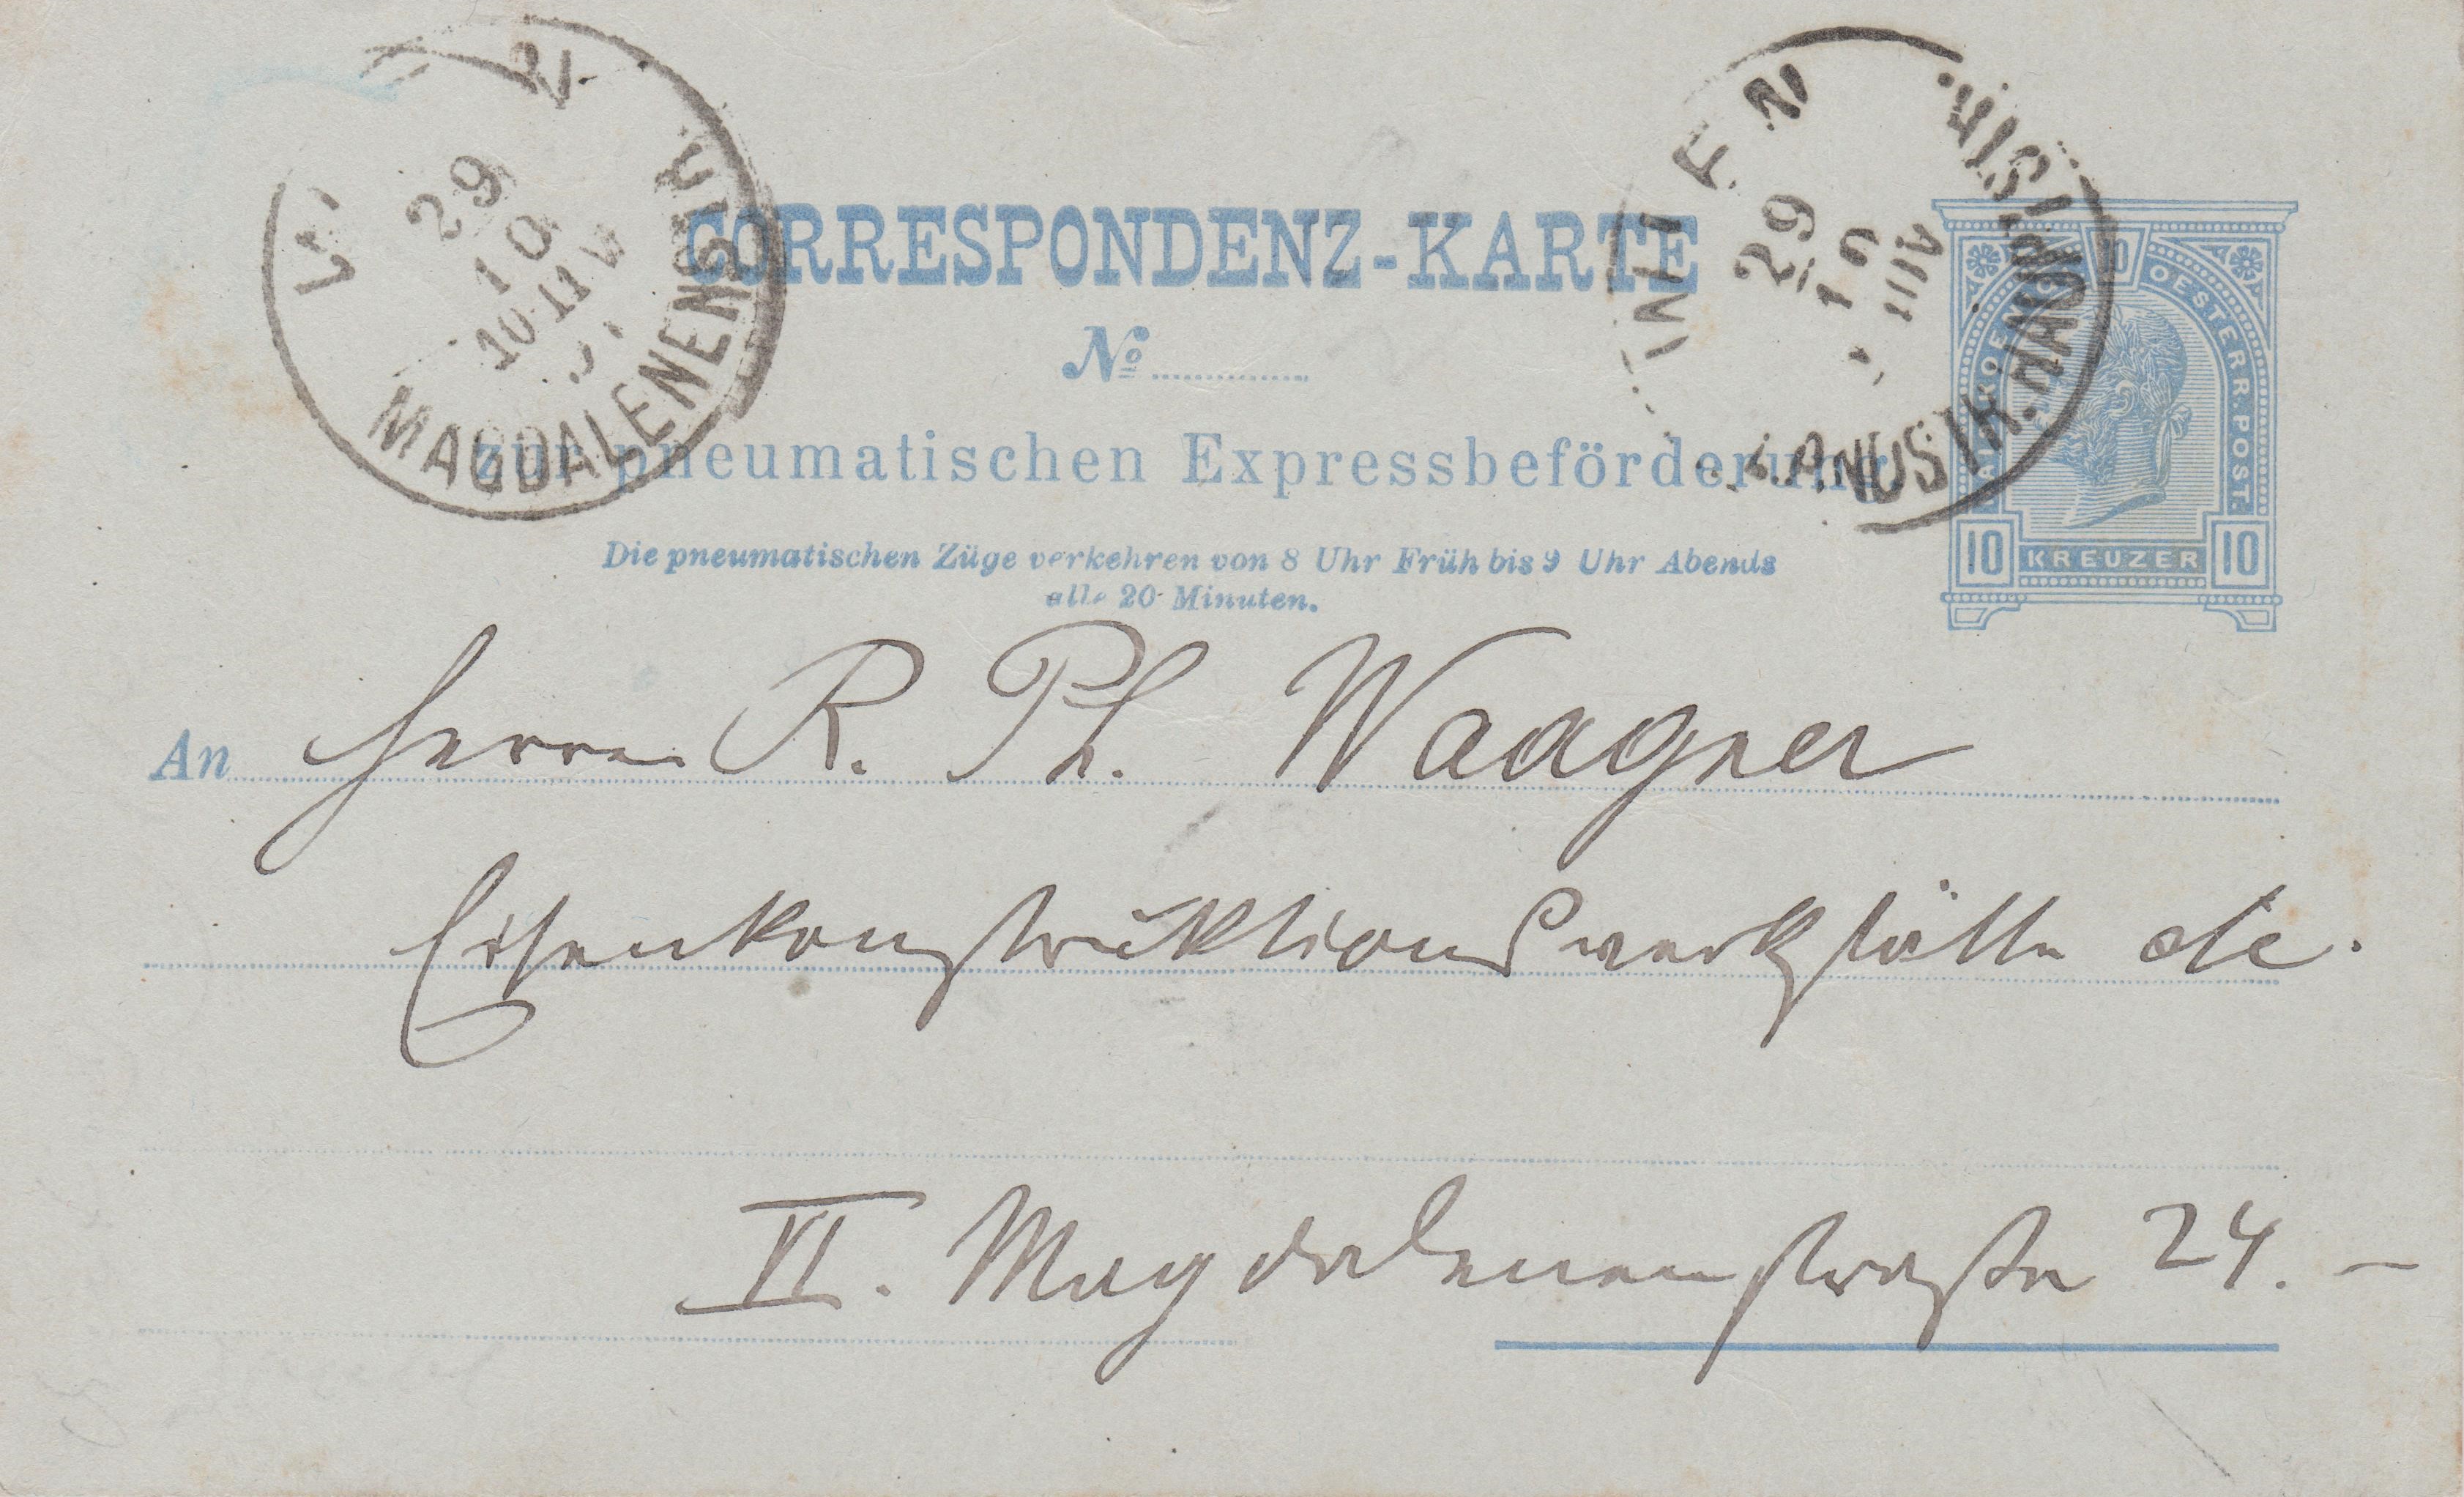 WIEN
29
10
10-11 V
MAGDALENENSTR.
WIEN
29
10
11 V
LANDSTR. HAUPTSTR.
CORRESPONDENZ-KARTE
No
zur pneumatischen Expressbeförderung.
Die pneumatischen Züge verkehren von 8 Uhr Früh bis 9 Uhr Abends
alle 20 Minuten.
KAIS. KOENIGL. 10 OESTERR. POST.
10 KREUZER 10
An Herrn R. Ph. Waagner
Eisenkonstruktionswerkstätte etc.
VI. Magdalenenstraße 24. –